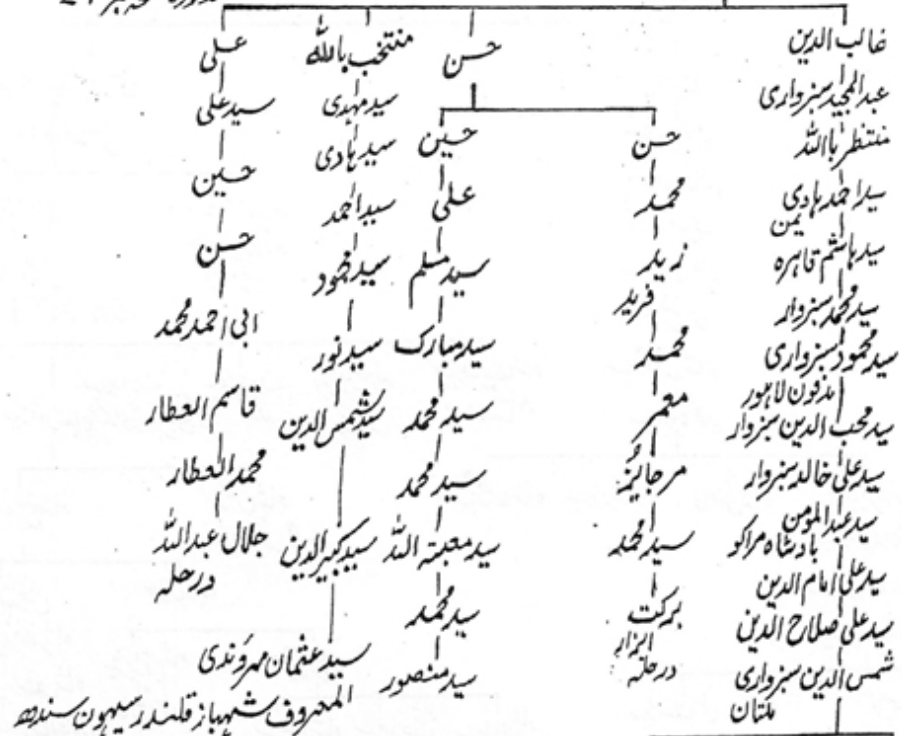 غالب الدین
عبدالمجید سبزواری
منتظر باللہ
سید احمد ہادی
یمن
سید ہاشم قاہرہ
سید محمد سبزوار
سید محمود سبزواری
مدفون لاہور
سید محب الدین سبزوار
سید علی خالد سبزوار
سید عبدالمومن
بادشاہ مراکو
سید علی امام الدین
سید علی صلاح الدین
شمس الدین سبزواری
ملتان
حسن
حسن
محمد
زید
فرید
محمد
معمر
سید محمد
برکت
البزار
در حلہ
حسین
علی
سید مسلم
سید مبارک
سید محمد
سید محمد
سید محمد
سید منصور
منتخب باللہ
سید مہدی
سید ہادی
سید احمد
سید محمود
سید نور
سید شمس الدین
سید کبیر الدین
سید عثمان مروندی
المعروف شہباز قلندر سیہون سندھ
علی
سید علی
حسین
حسن
ابی احمد محمد
قاسم العطار
محمد العطار
جلال عبداللہ
در حلہ